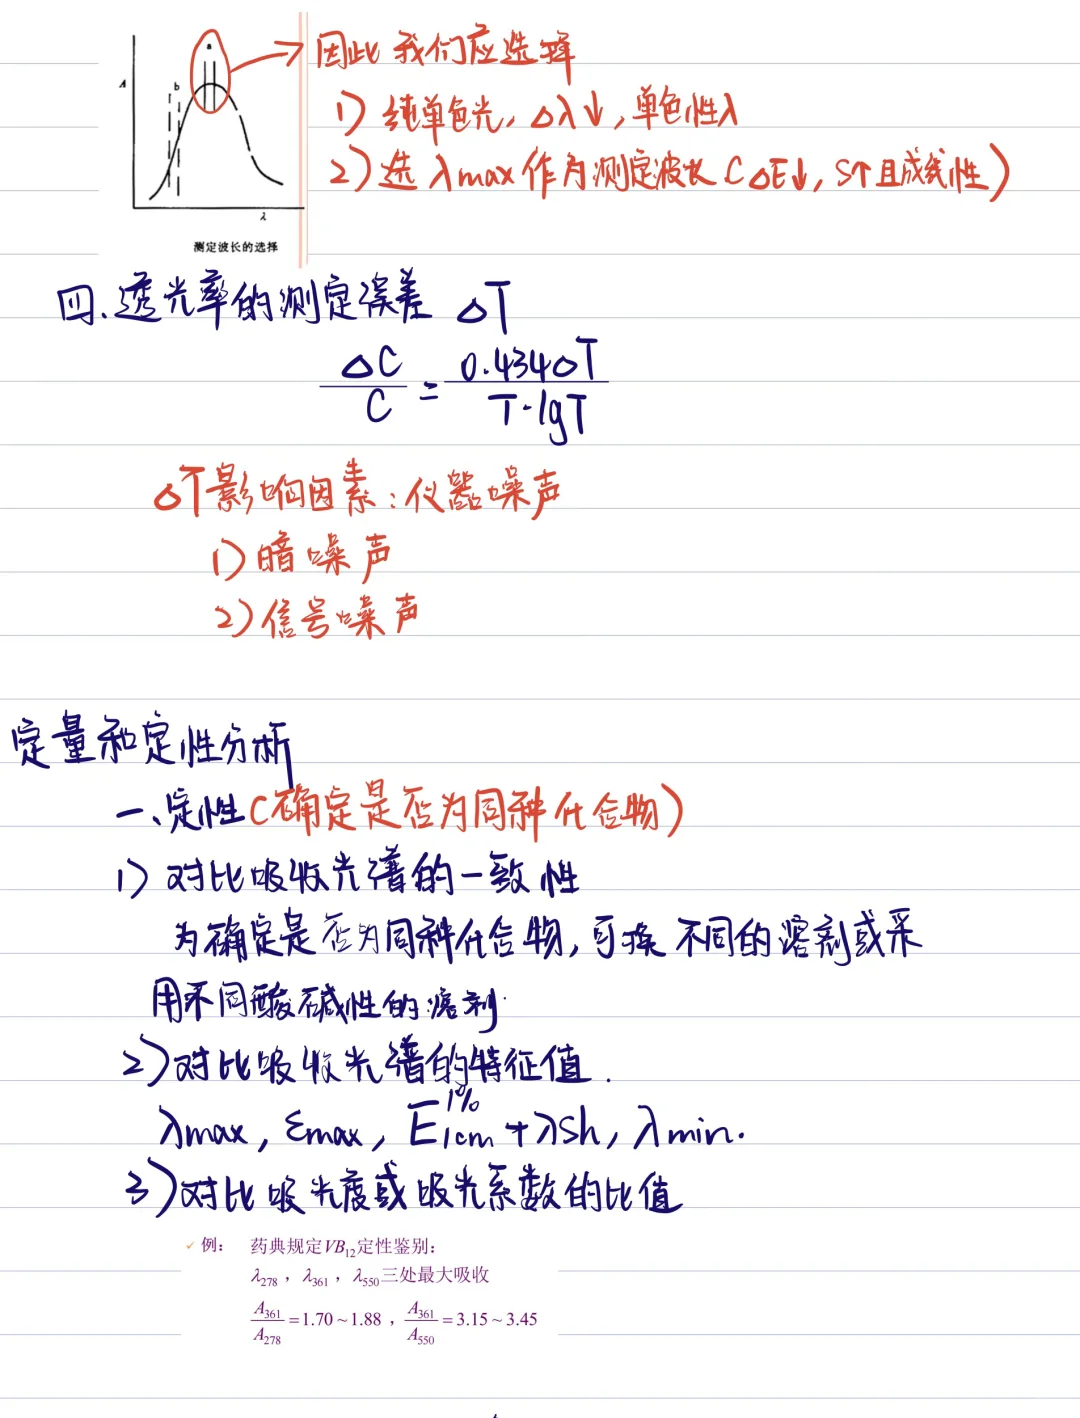 因此我们应选择
1) 纯单色光，Δλ↓，单色性λ
2) 选λmax作为测定波长（ΔE↓，S↑且成线性）
A
a
b
λ
测定波长的选择
四、透光率的测定误差 ΔT
ΔC/C = 0.434ΔT/T·lgT
ΔT影响因素：仪器噪声
1) 暗噪声
2) 信号噪声
定量和定性分析
一、定性（确定是否为同种化合物）
1) 对比吸收光谱的一致性
为确定是否为同种化合物，可换不同的溶剂或采
用不同酸碱性的溶剂
2) 对比吸收光谱的特征值.
λmax，εmax，E1%1cm + λsh，λmin.
3) 对比吸光度或吸光系数的比值
✓ 例： 药典规定VB12定性鉴别：
λ278，λ361，λ550三处最大吸收
A361/A278 =1.70～1.88，A361/A550 = 3.15～3.45